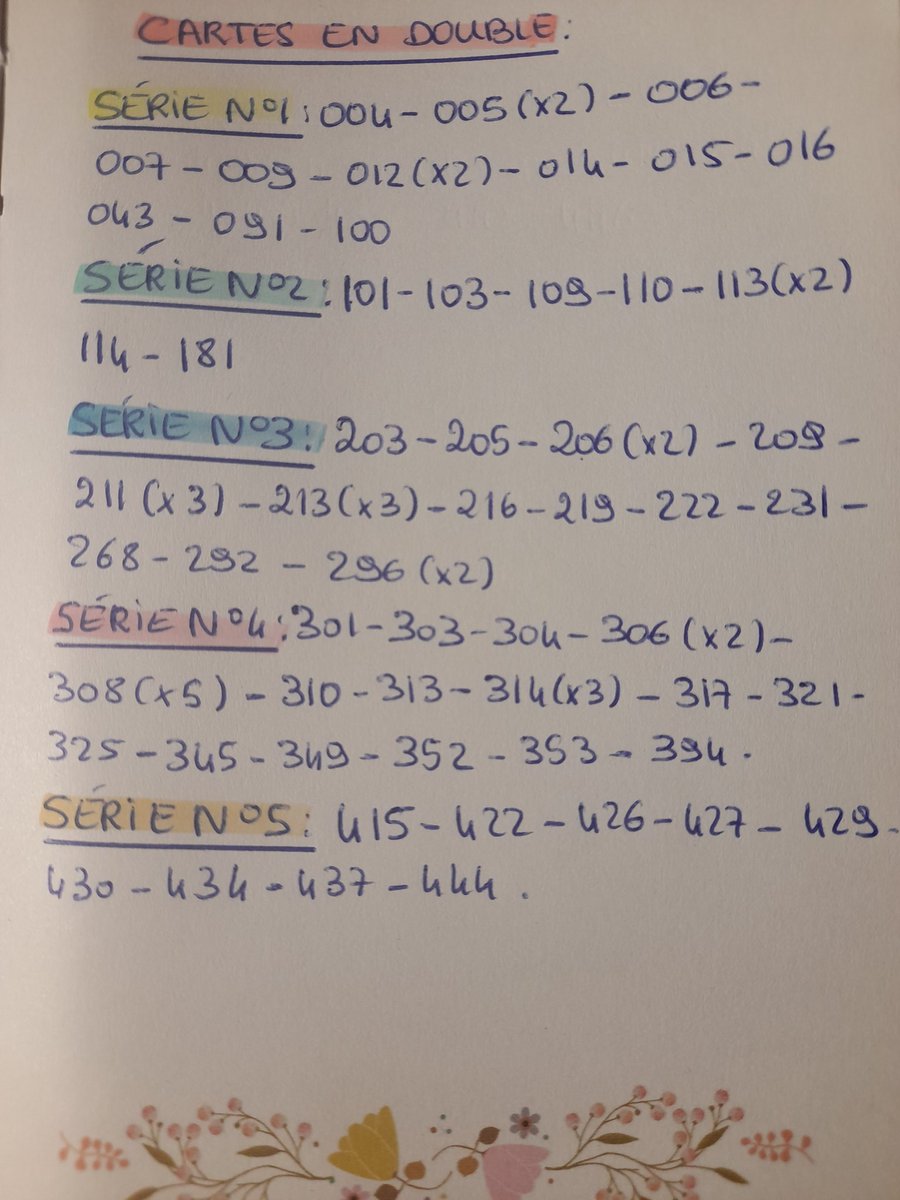 CARTES EN DOUBLE:
SÉRIE N°1: 004 - 005 (x2) - 006 -
007 - 009 - 012 (x2) - 014 - 015 - 016
043 - 091 - 100
SÉRIE N°2: 101 - 103 - 109 - 110 - 113 (x2)
114 - 181
SÉRIE N°3: 203 - 205 - 206 (x2) - 209 -
211 (x3) - 213 (x3) - 216 - 219 - 222 - 231 -
268 - 292 - 296 (x2)
SÉRIE N°4: 301 - 303 - 304 - 306 (x2) -
308 (x5) - 310 - 313 - 314 (x3) - 317 - 321 -
325 - 345 - 349 - 352 - 353 - 394.
SÉRIE N°5: 415 - 422 - 426 - 427 - 429 -
430 - 434 - 437 - 444.